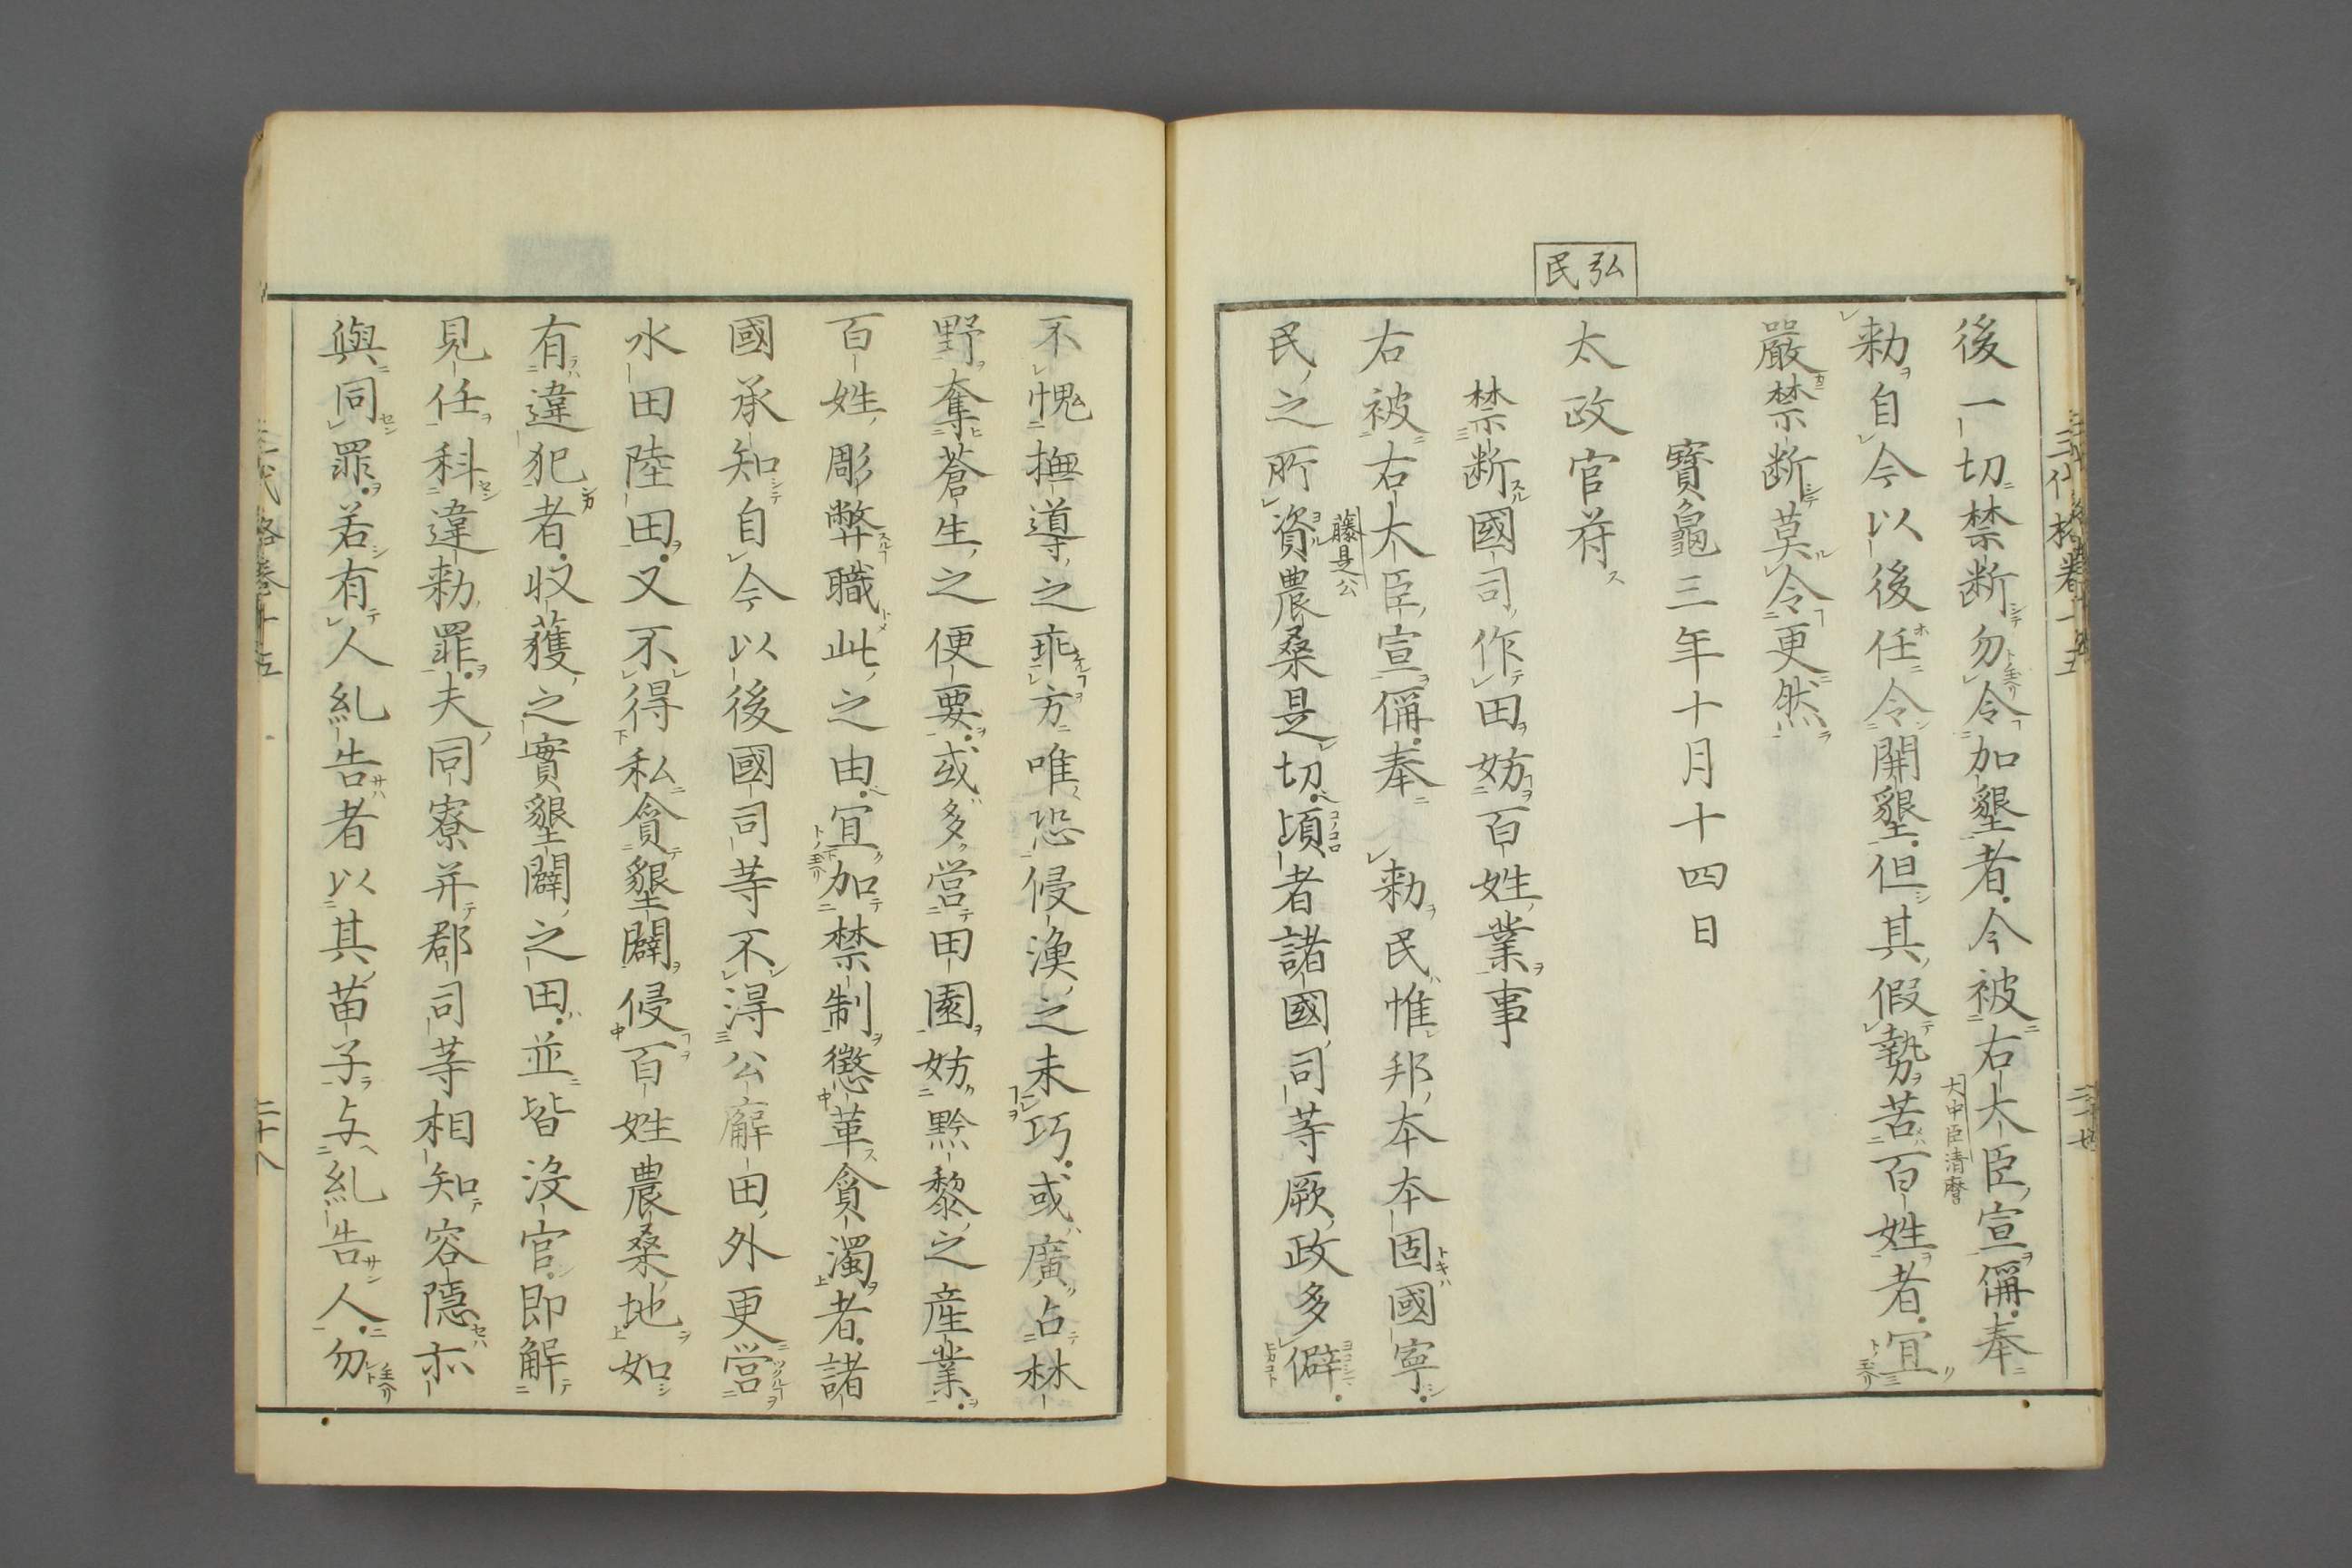 弘民
後一切禁断勿令加墾者今被右大臣宣偁奉
大中臣清麿
勅自今以後任令開墾但其假勢苦百姓者宜
嚴禁断莫令更然
寶龜三年十月十四日
太政官符
禁断國司作田妨百姓業事
右被右大臣宣偁奉 勅民惟邦本本固國寧
藤是公
民之所資農桑是切頃者諸國司等厥政多僻
不愧撫導之乖方唯恐侵漁之未巧或廣占林
野奪蒼生之便要或多營田園妨黔黎之産業
百姓彫弊職此之由宜加禁制懲革貪濁者諸
國承知自今以後國司等不得公廨田外更營
水田陸田又不得私貪墾闢侵百姓農桑地如
有違犯者收獲之實墾闢之田並皆沒官即解
見任科違勅罪夫同寮并郡司等相知容隱亦
與同罪若有人糺告者以其苗子与糺告人勿